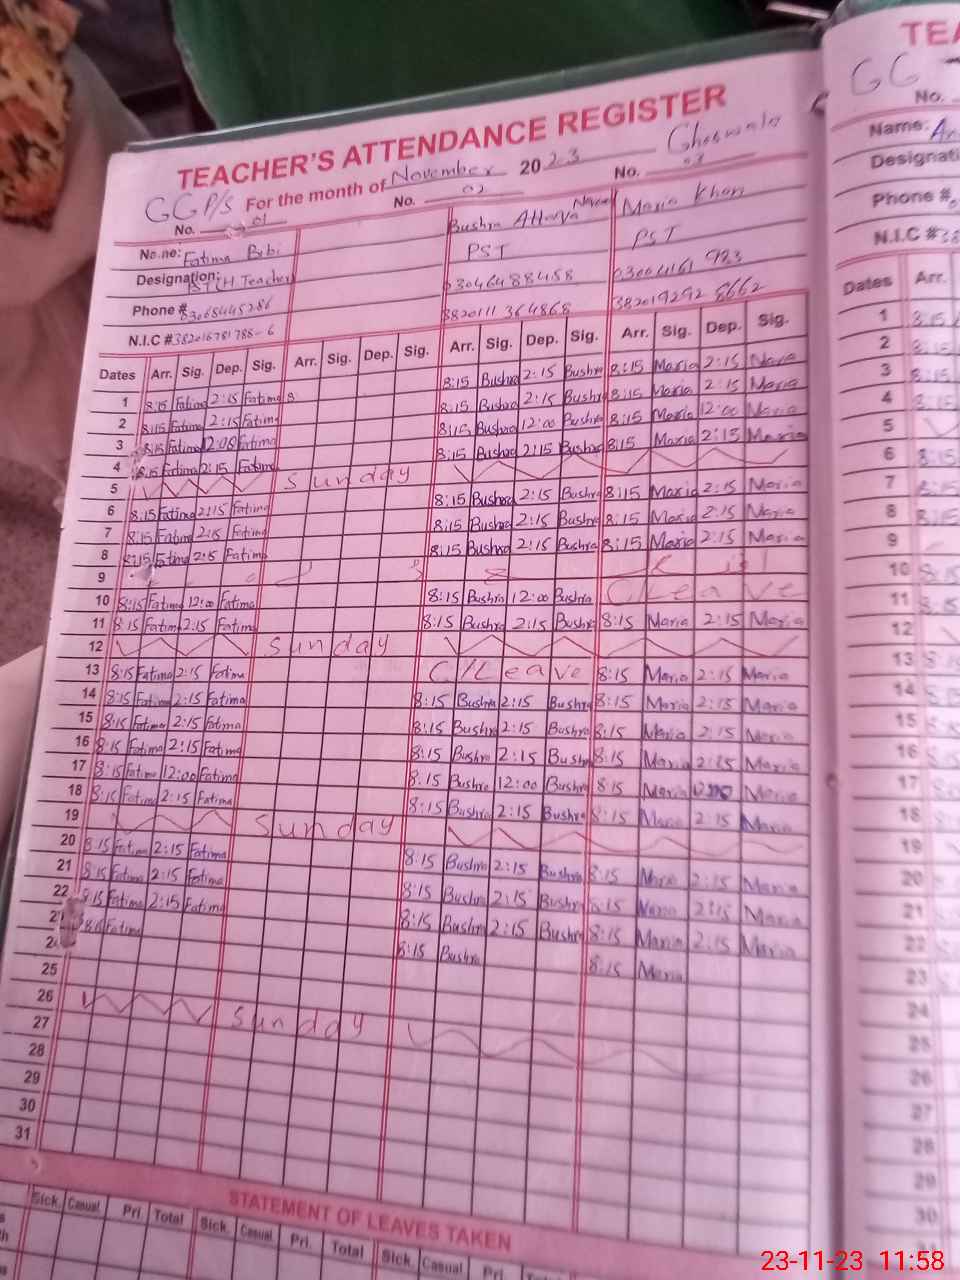 TEACHER'S ATTENDANCE REGISTER
GGP/S For the month of November 2023
No. 01 No. 02 No. 03
Name: Fatima Bibi Bushra Maria Khan
Designation: Teacher PST PST
Phone # 03065445286 03046488458
N.I.C #
Dates Arr. Sig. Dep. Sig. Arr. Sig. Dep. Sig. Arr. Sig. Dep. Sig. Arr. Sig. Dep. Sig.
1 8:15 Fatima 2:15 Fatima 8:15 Bushra 2:15 Bushra 8:15 Maria 2:15
2 8:15 Fatima 2:15 Fatima 8:15 Bushra 2:15 Bushra 8:15 Maria 2:15 Maria
3 8:15 Fatima 12:00 Fatima 8:15 Bushra 12:00 Bushra 8:15 Maria 12:00 Maria
4 8:15 Fatima 2:15 Fatima 8:15 Bushra 2:15 Bushra 8:15 Maria 2:15 Maria
5 Sunday
6 8:15 Fatima 2:15 Fatima 8:15 Bushra 2:15 Bushra 8:15 Maria 2:15 Maria
7 8:15 Fatima 2:15 Fatima 8:15 Bushra 2:15 Bushra 8:15 Maria 2:15 Maria
8 8:15 Fatima 2:15 Fatima 8:15 Bushra 2:15 Bushra 8:15 Maria 2:15 Maria
9
10 8:15 Fatima 12:00 Fatima 8:15 Bushra 12:00 Bushra C Leave
11 8:15 Fatima 2:15 Fatima 8:15 Bushra 2:15 Bushra 8:15 Maria 2:15 Maria
12 Sunday
13 8:15 Fatima 2:15 Fatima C/Leave 8:15 Maria 2:15 Maria
14 8:15 Fatima 2:15 Fatima 8:15 Bushra 2:15 Bushra 8:15 Maria 2:15 Maria
15 8:15 Fatima 2:15 Fatima 8:15 Bushra 2:15 Bushra 8:15 Maria 2:15 Maria
16 8:15 Fatima 2:15 Fatima 8:15 Bushra 2:15 Bushra 8:15 Maria 2:15 Maria
17 8:15 Fatima 12:00 Fatima 8:15 Bushra 12:00 Bushra 8:15 Maria Maria
18 8:15 Fatima 2:15 Fatima 8:15 Bushra 2:15 Bushra 8:15 Maria 2:15 Maria
19 Sunday
20 8:15 Fatima 2:15 Fatima 8:15 Bushra 2:15 Bushra 8:15 Maria 2:15 Maria
21 8:15 Fatima 2:15 Fatima 8:15 Bushra 2:15 Bushra 8:15 Maria 2:15 Maria
22 8:15 Fatima 2:15 Fatima 8:15 Bushra 2:15 Bushra 8:15 Maria 2:15 Maria
8:15 Fatima 8:15 Bushra 8:15 Maria
25
26 Sunday
27
28
29
30
31
STATEMENT OF LEAVES TAKEN
Sick. Casual Pri. Total Sick. Casual Pri. Total Sick. Casual Pri.
GG
No.
Name:
Phone #
N.I.C #
Dates Arr.
1 8:15
2 8:15
3 8:15
4 8:15
5
6 8:15
7 8:15
8 8:15
9
10 8:15
11 8:15
12
13
14
15
16
17
18
19
20
21
22
23
24
25
26
27
28
29
30
23-11-23 11:58